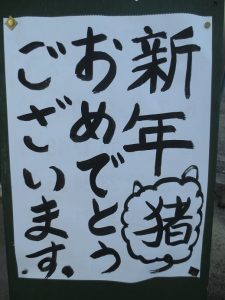 新年
おめでとう
ございます。
猪